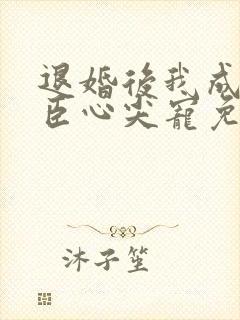 退婚後我成
臣心尖寵免
沐子笙